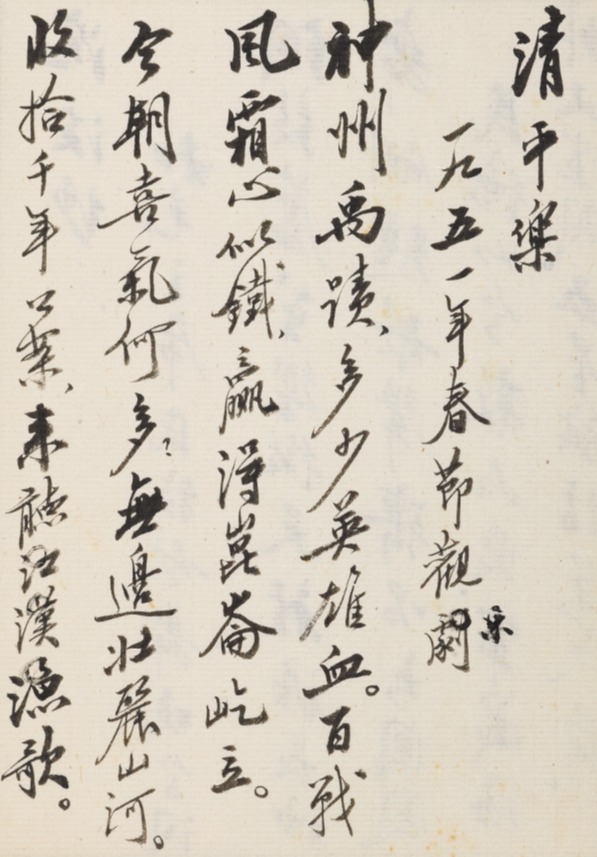 清平樂
一九五一年春節觀劇
神州禹蹟、多少英雄血。百戰
風霜心似鐵、贏得崑崙屹立。
今朝喜氣何多;無邊壯麗山河。
收拾千年公案、來聽江漢漁歌。